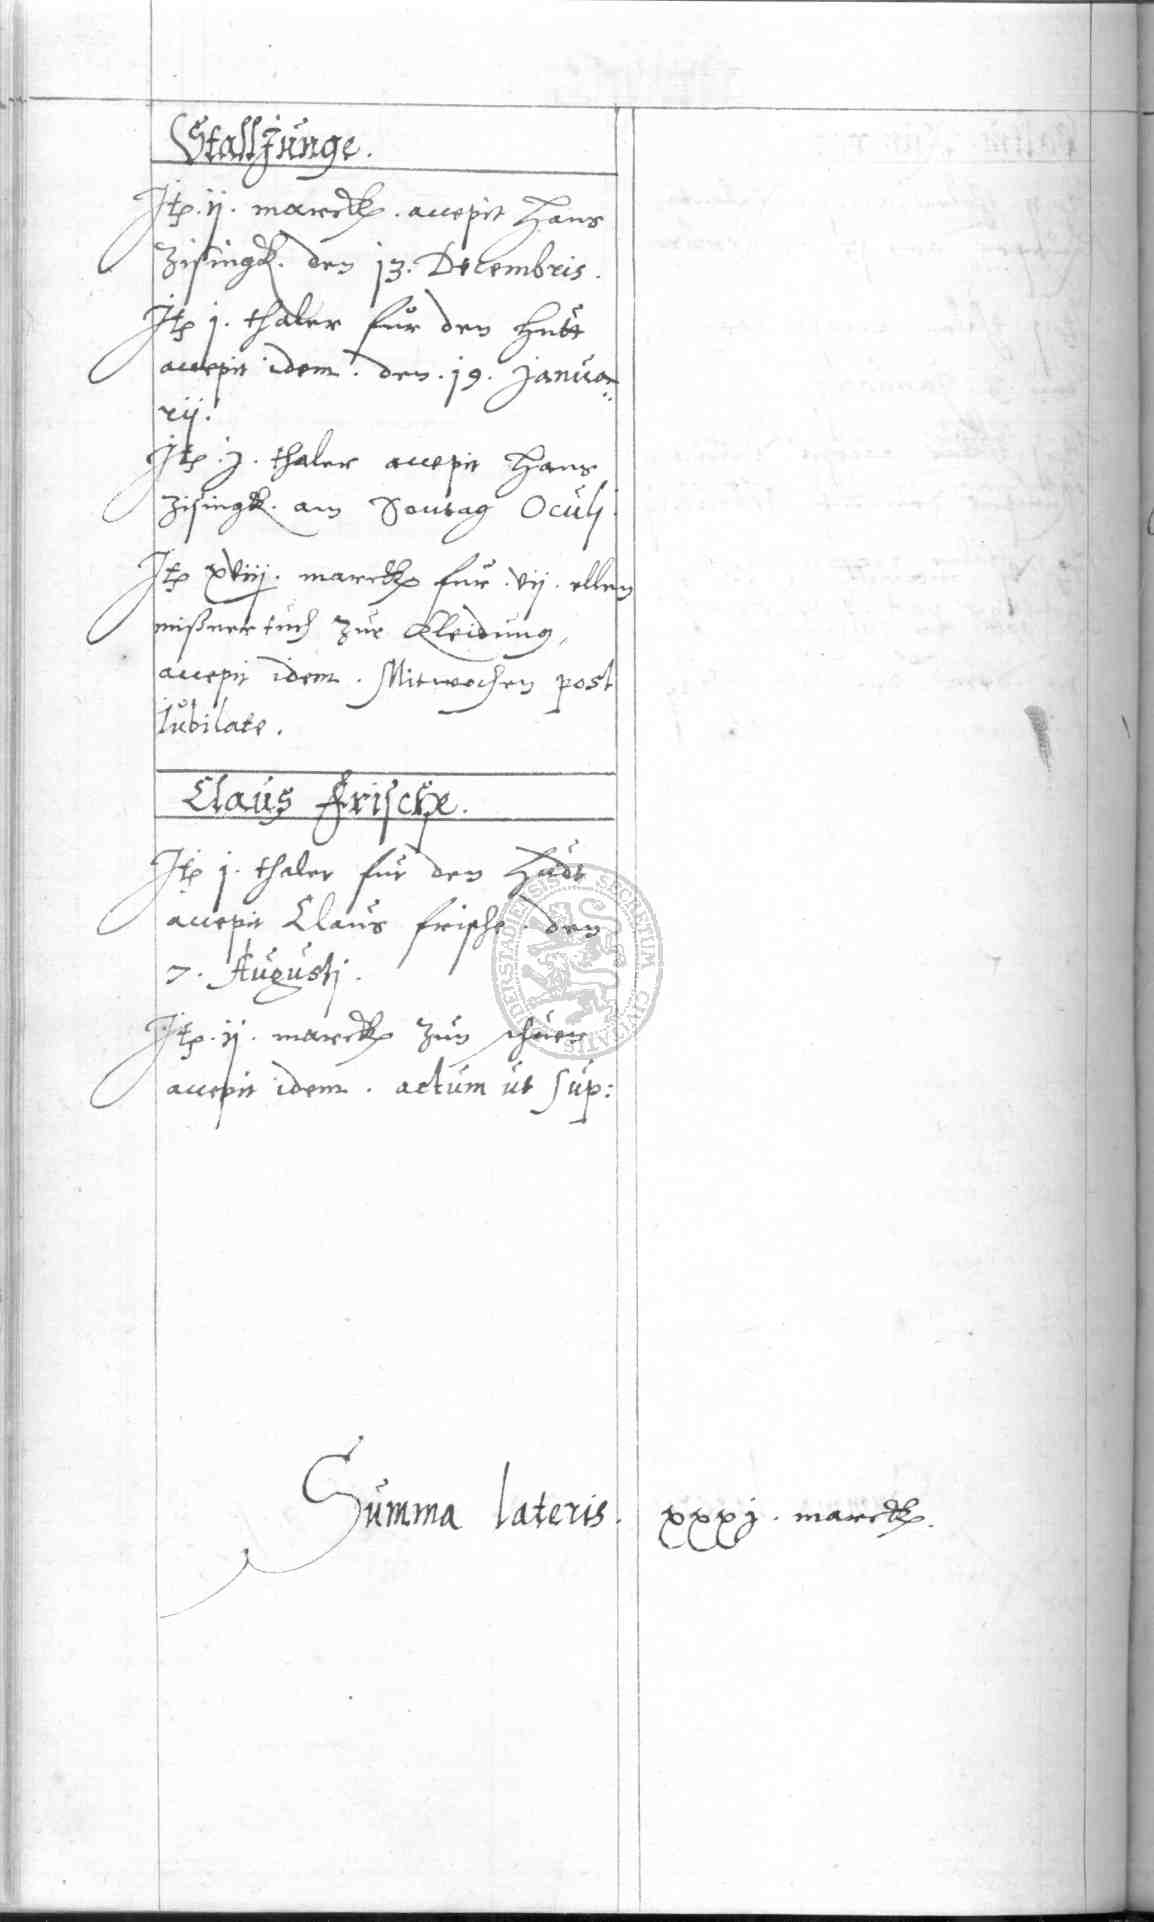 StallJunge.
Itp. ij. marck. accepit Hans
Zisingk. den 13. Decembris.
Itp j. thaler fur den Hutt
accepit idem. den. 19. Janua=
rij.
Itp. j. thaler accepit Hans
Zisingk. am Sontag Oculj.
Itp xviij. marck fur. vij. ellen
mißner tuch zur Kleidung,
accepit idem. Mitwochen post
Iubilate.
Claus Frische.
Itp j. thaler fur den Hudt
accepit Claus frische. den
7. Augustj.
Itp. ij. marck zun schuen
accepit idem. actum ut sup:
SECRETUM CIVITATIS DUDERSTADIENSIS
Summa lateris. xxxj. marck.